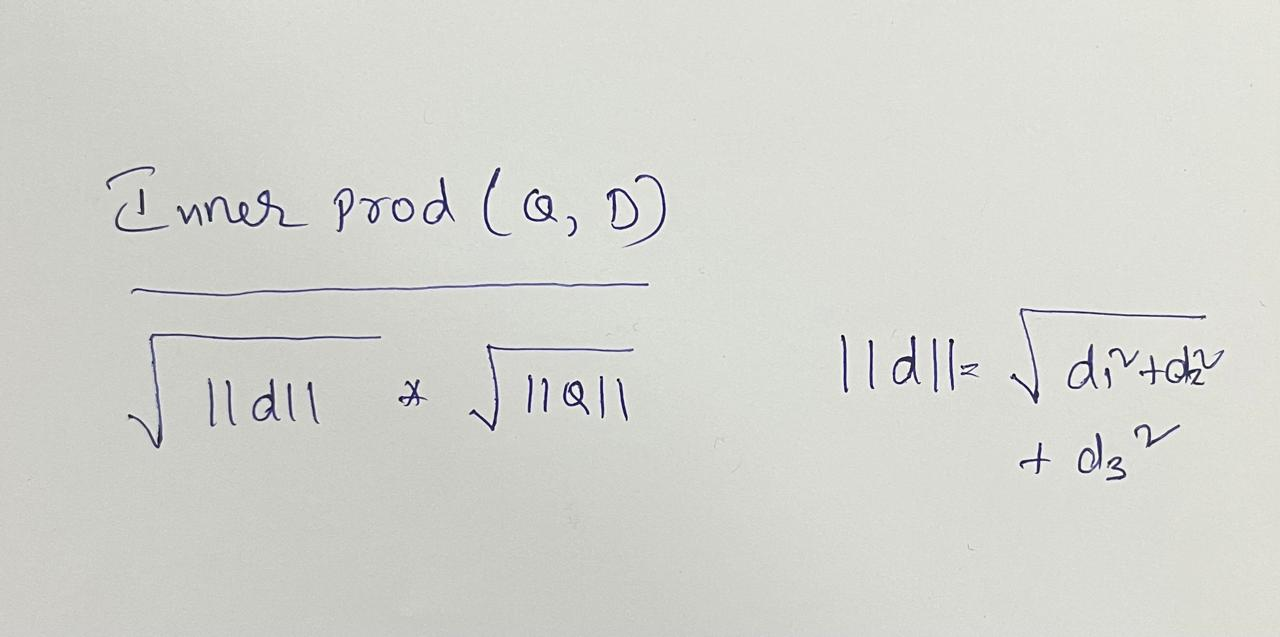 Inner prod (Q, D)
√||d|| * √||Q||
||d||= √d₁²+d₂²
+ d₃²